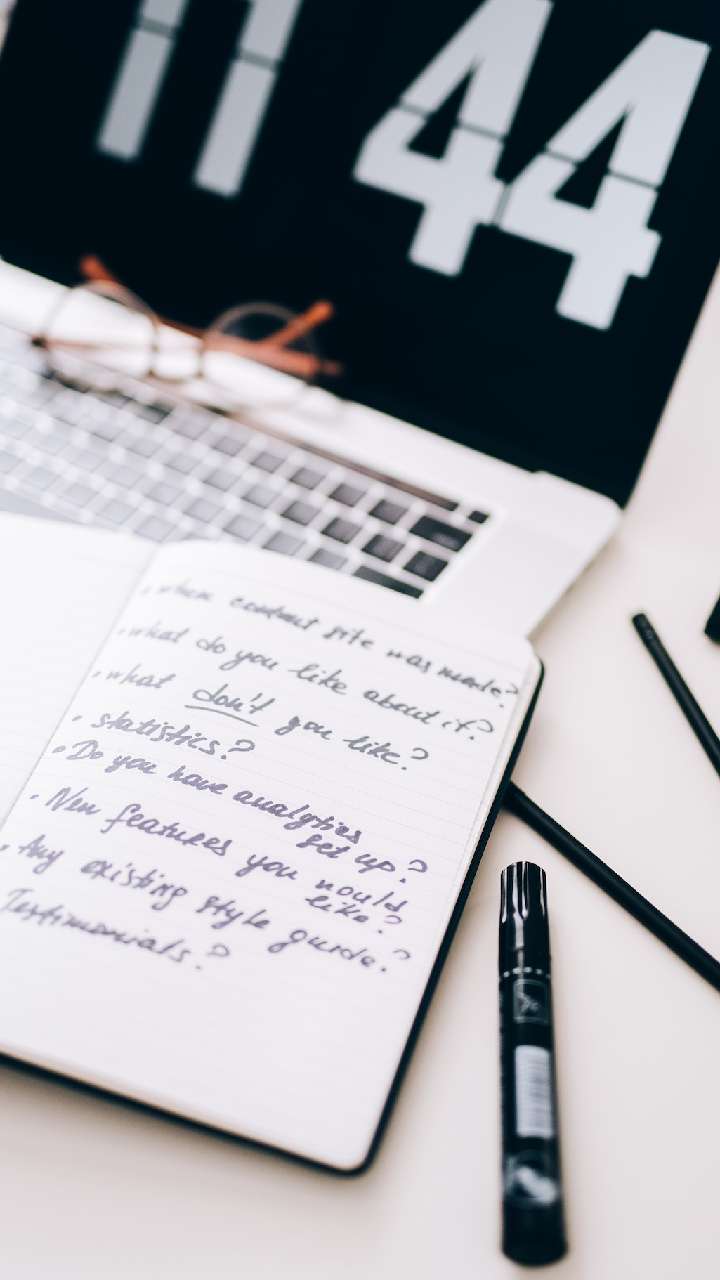 11 44
• when current site was made?
• what do you like about it?
• what don't you like?
• statistics?
• Do you have analytics
set up?
• New features you would
like?
• Any existing style guide?
Testimonials?